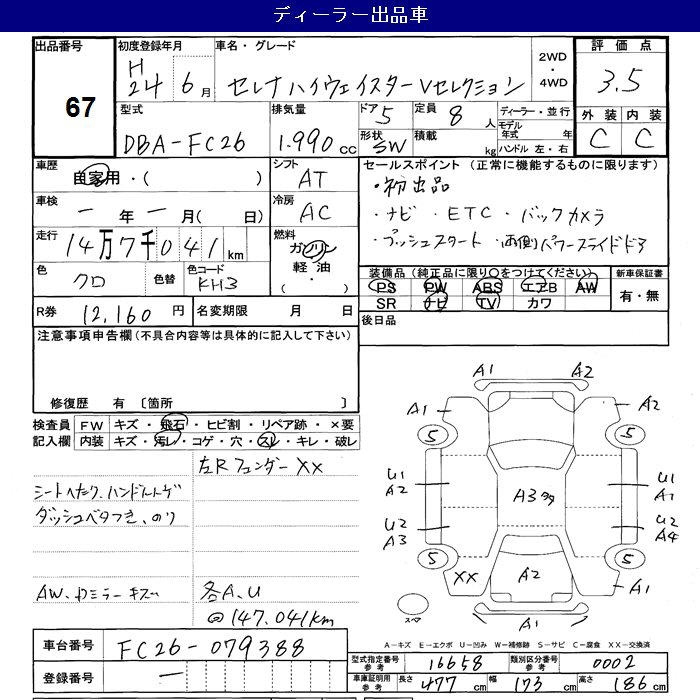 ディーラー出品車
出品番号 67
初度登録年月 H 24 6月
車名・グレード セレナ ハイウェイスターVセレクション
2WD・4WD
評価点 3.5
外装 内装
C C
型式 DBA-FC26
排気量 1.990 cc
ドア 5
形状 SW
定員 8 人
積載 kg
ディーラー・並行
モデル年式 年
ハンドル 左・右
車歴 自家用・( )
シフト AT
車検 一 年 一 月(日)
冷房 AC
走行 14万7千041 km
燃料 ガソリン 軽油・
色 クロ 色替 色コード KH3
R券 12,160 円 名変期限 月 日
セールスポイント(正常に機能するものに限ります)
・初出品
・ナビ・ETC・バックカメラ
・プッシュスタート・両側パワースライドドア
装備品(純正品に限り○をつけてください)
新車保証書
PS PW ABS エアB AW
SR ナビ TV カワ
有・無
後日品
注意事項申告欄(不具合内容等は具体的に記入して下さい)
修復歴 有 〔箇所 〕
検査員記入欄
FW キズ・飛石・ヒビ割・リペア跡・×要
内装 キズ・汚レ・コゲ・穴・スレ・キレ・破レ
左Rフェンダー XX
シートヘタり、ハンドルトゲ
ダッシュベタつき、のり
AW、ドミラーキズ
各A、U
@147.041km
A1 A2
A1 A2
5 5
U1 A2
A3多
U1 A1
U2 A3
U2 A4
5 5
XX A2 A1
A1
スペア
A-キズ E-エクボ U-凹み W-補修跡 S-サビ C-腐食 XX-交換済
車台番号 FC26-079388
登録番号 一
型式指定番号 参考 16658
類別区分番号 参考 0002
車庫証明用 参考 長さ 477 cm 幅 173 cm 高さ 186 cm